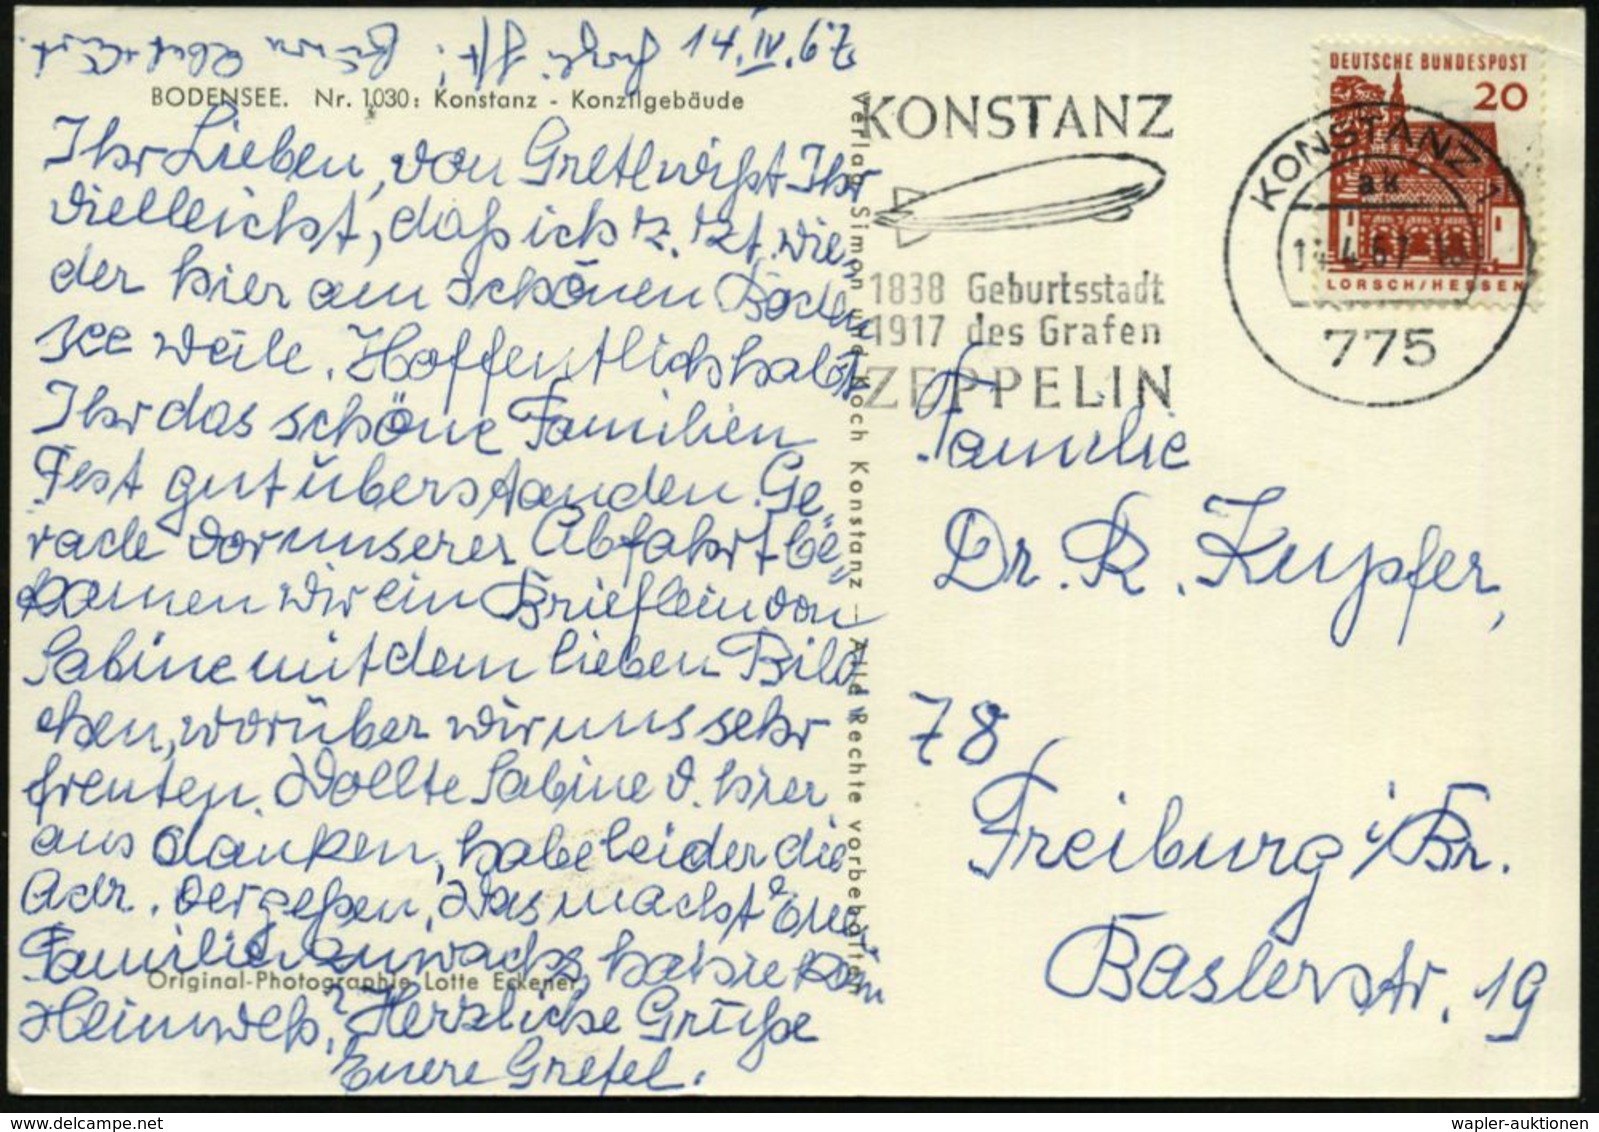 14. IV. 67
BODENSEE. Nr. 1030: Konstanz - Konzilgebäude
Ihr Lieben, von Gretl wißt Ihr
vielleicht, daß ich z. Zt. wie-
der hier am schönen Boden
see weile. Hoffentlich habt
Ihr das schöne Familien
Fest gut überstanden. Ge-
rade vor unserer Abfahrt be-
kamen wir ein Brieflein von
Sabine mit dem lieben Bild
chen, worüber wir uns sehr
freuten. Wollte Sabine v. hier
aus danken, habe leider die
Adr. vergeßen. Was macht Euer
Familienzuwachs, hat sie kein
Original-Photographie Lotte Eckener
Heimweh? Herzliche Grüße
Euere Gretel.
Verlag Simon und Koch Konstanz - Alle Rechte vorbehalten
KONSTANZ
1838 Geburtsstadt
1917 des Grafen
ZEPPELIN
DEUTSCHE BUNDESPOST
20
LORSCH/HESSEN
KONSTANZ
ak
14.4.67
775
Familie
Dr. R. Kupfer,
78
Freiburg i/Br.
Baslerstr. 19
wapler-auktionen